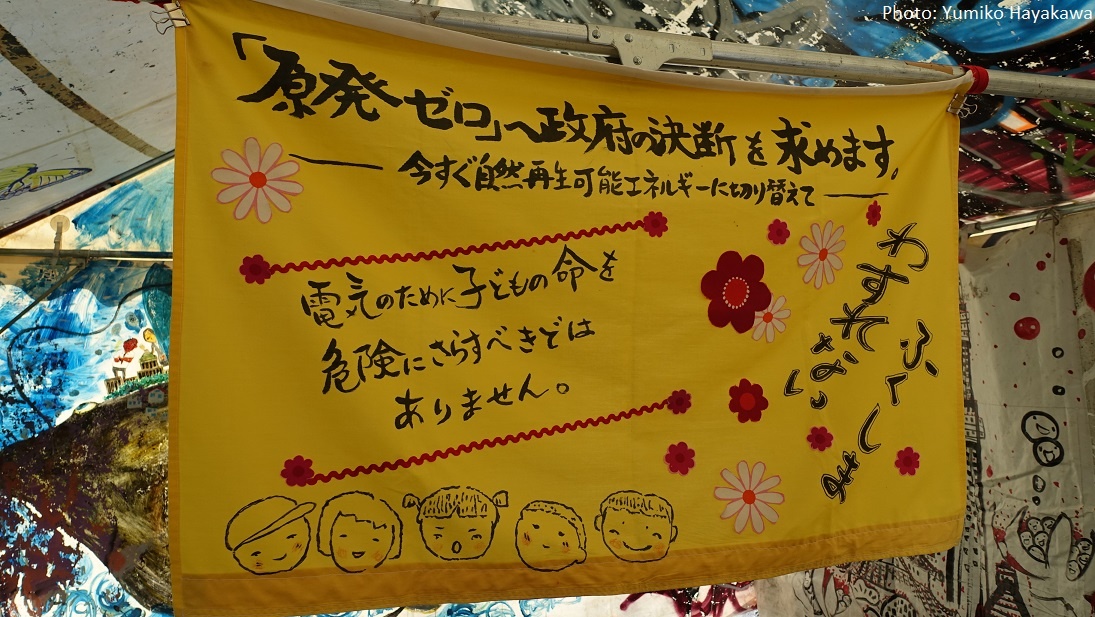 Photo: Yumiko Hayakawa
「原発ゼロ」へ政府の決断を求めます。
― 今すぐ自然再生可能エネルギーに切り替えて ―
電気のために子どもの命を
危険にさらすべきでは
ありません。
わすれない
ふくしま